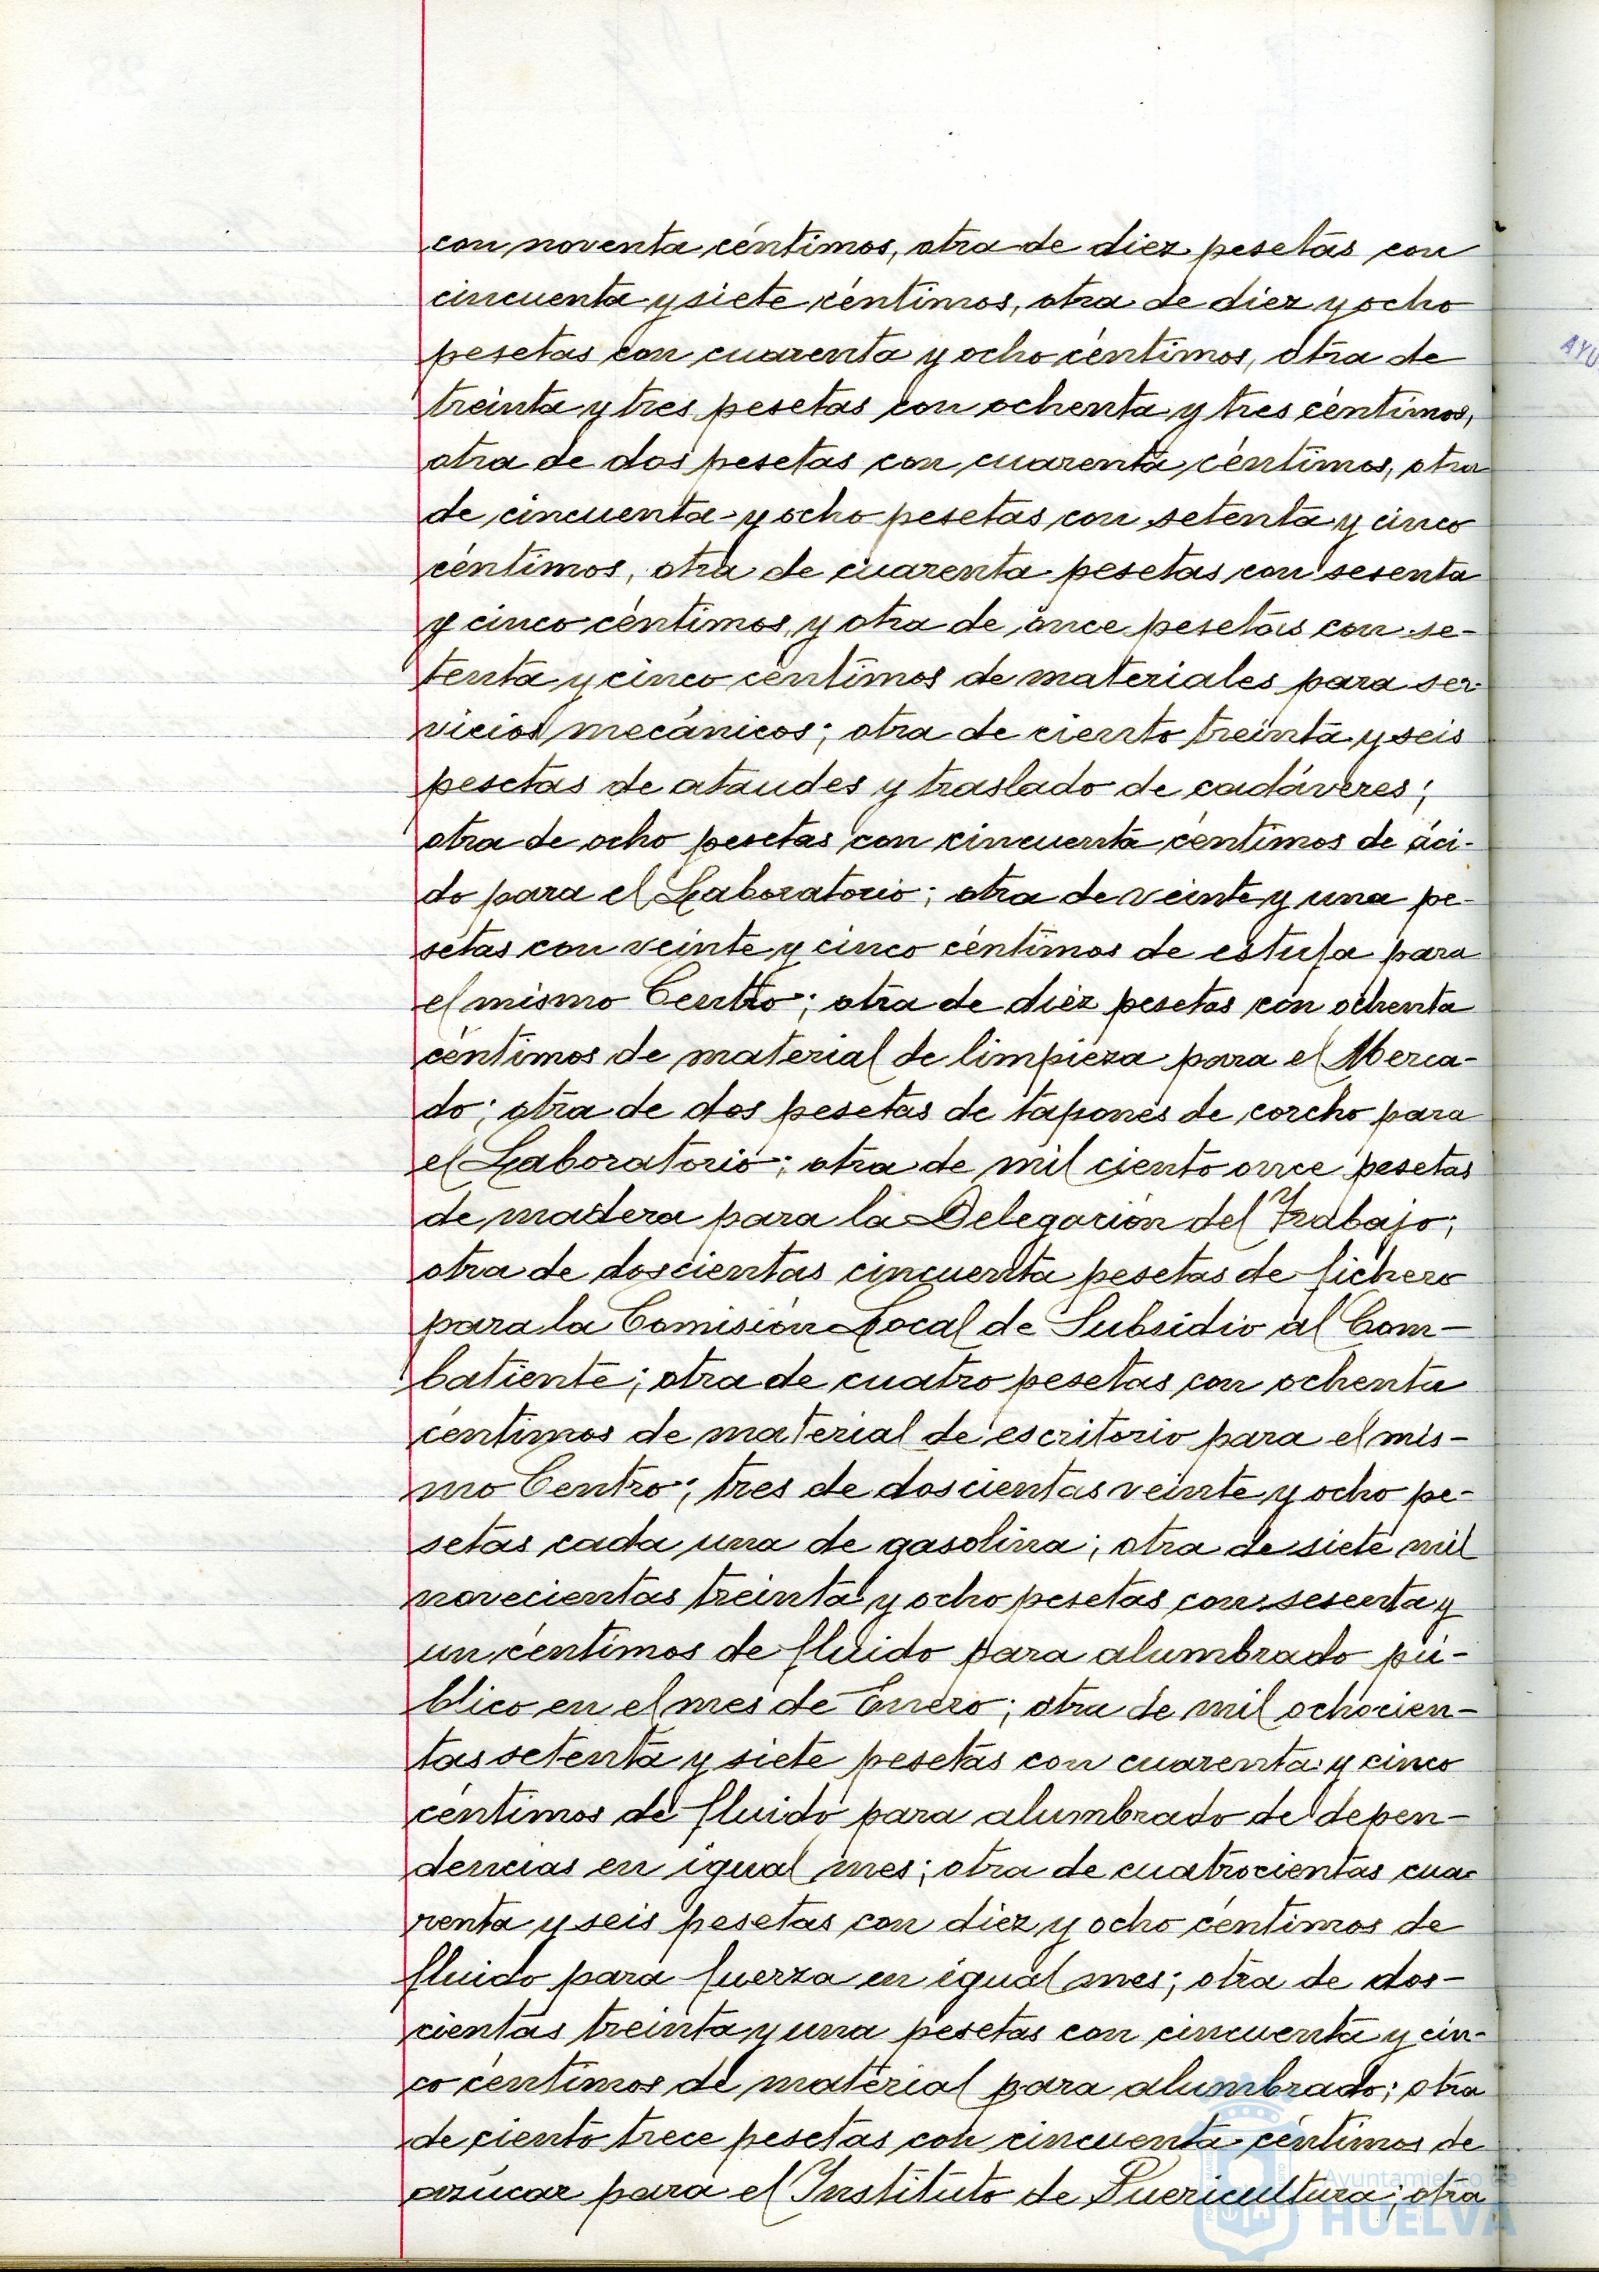 con noventa céntimos, otra de diez pesetas con
cincuenta y siete céntimos, otra de diez y ocho
pesetas con cuarenta y ocho céntimos, otra de
treinta y tres pesetas con ochenta y tres céntimos,
otra de dos pesetas con cuarenta céntimos, otra
de cincuenta y ocho pesetas con setenta y cinco
céntimos, otra de cuarenta pesetas con sesenta
y cinco céntimos, y otra de once pesetas con se-
tenta y cinco céntimos de materiales para ser-
vicios mecánicos; otra de ciento treinta y seis
pesetas de ataudes y traslado de cadáveres;
otra de ocho pesetas con cincuenta céntimos de áci-
do para el Laboratorio; otra de veinte y una pe-
setas con veinte y cinco céntimos de estufa para
el mismo Centro; otra de diez pesetas con ochenta
céntimos de material de limpieza para el Merca-
do; otra de dos pesetas de tapones de corcho para
el Laboratorio; otra de mil ciento once pesetas
de madera para la Delegación del Trabajo;
otra de doscientas cincuenta pesetas de fichero
para la Comisión Local de Subsidio al Com-
batiente; otra de cuatro pesetas con ochenta
céntimos de material de escritorio para el mis-
mo Centro; tres de doscientas veinte y ocho pe-
setas cada una de gasolina; otra de siete mil
novecientas treinta y ocho pesetas con sesenta y
un céntimos de fluido para alumbrado pú-
blico en el mes de Enero; otra de mil ochocien-
tas setenta y siete pesetas con cuarenta y cinco
céntimos de fluido para alumbrado de depen-
dencias en igual mes; otra de cuatrocientas cua-
renta y seis pesetas con diez y ocho céntimos de
fluido para fuerza en igual mes; otra de dos-
cientas treinta y una pesetas con cincuenta y cin-
co céntimos de material para alumbrado; otra
de ciento trece pesetas con cincuenta céntimos de
azúcar para el Instituto de Puericultura; otra
Ayuntamiento de
HUELVA
AYU